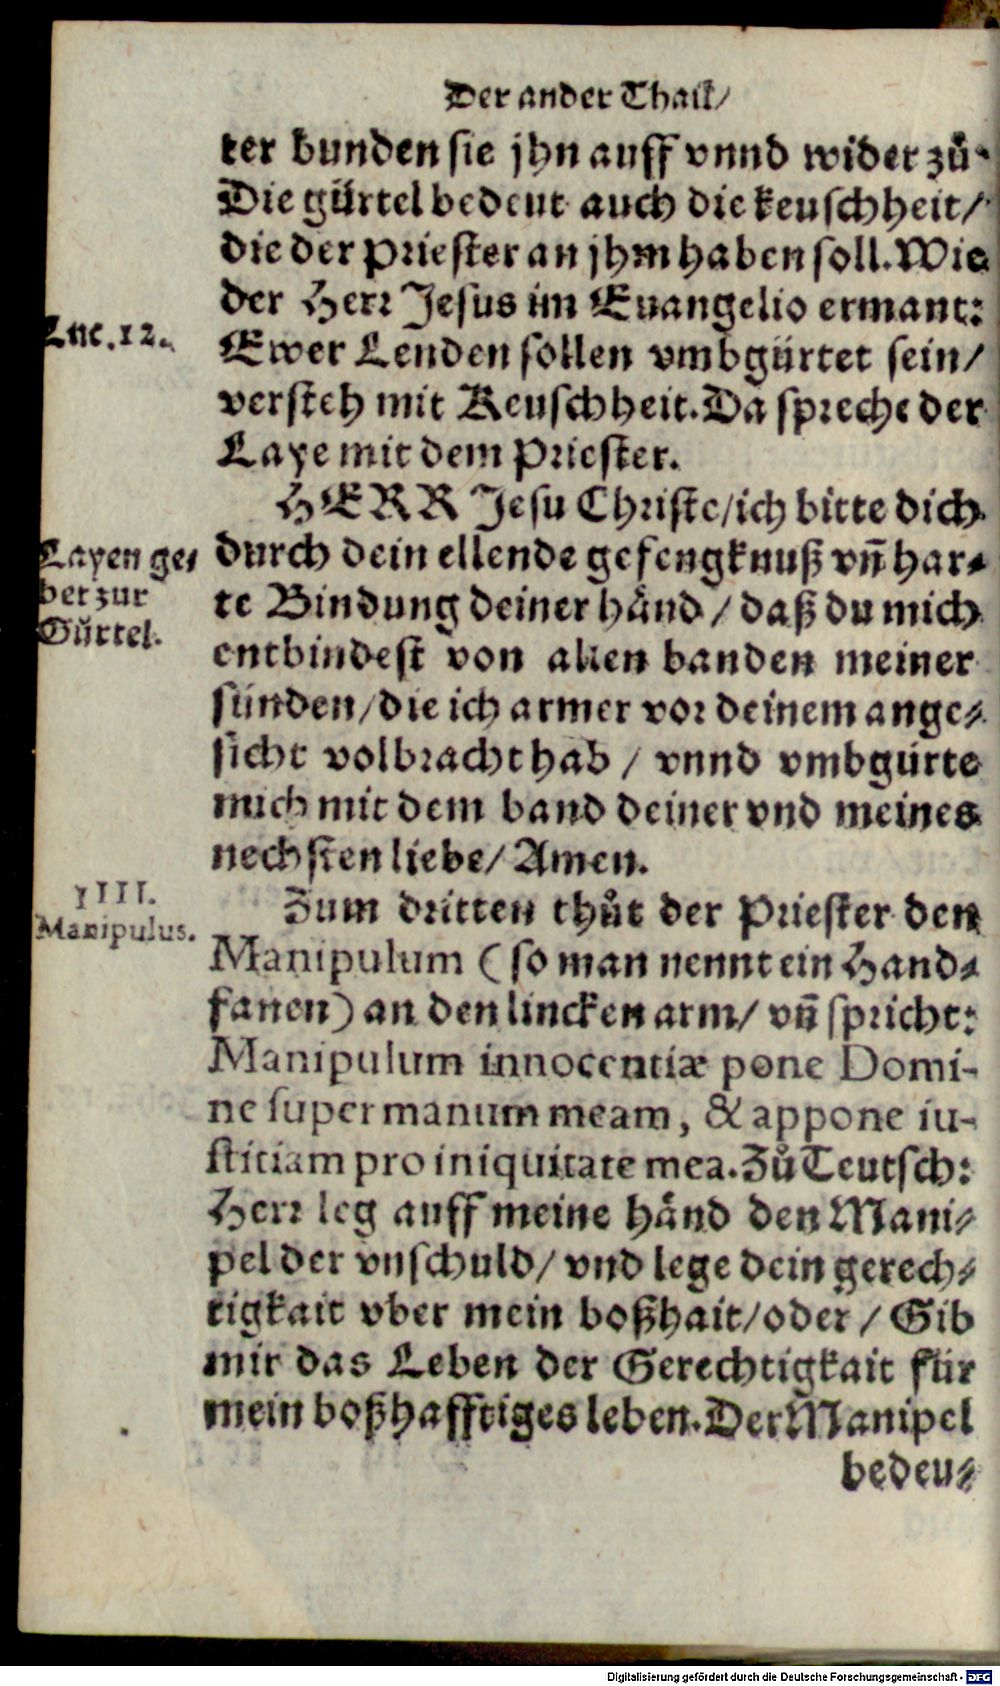 Der ander Thail/
ter bunden sie jhn auff vnnd wider zů.
Die gürtel bedeut auch die keuschheit/
die der Priester an jhm haben soll. Wie
der Herr Jesus im Euangelio ermant:
Luc. 12.
Ewer Lenden sollen vmbgürtet sein/
versteh mit Keuschheit. Da spreche der
Laye mit dem Priester.
HERR Jesu Christe/ich bitte dich
Layen ge⸗
bet zur
Gürtel.
durch dein ellende gefengknuß vñ har⸗
te Bindung deiner hånd / daß du mich
entbindest von allen banden meiner
sünden/die ich armer vor deinem ange⸗
sicht volbracht hab / vnnd vmbgürte
mich mit dem band deiner vnd meines
nechsten liebe/ Amen.
IIII.
Manipulus.
Zum dritten thůt der Priester den
Manipulum (so man nennt ein Hand⸗
fanen) an den lincken arm/ vñ spricht:
Manipulum innocentiæ pone Domi-
ne super manum meam, & appone iu-
stitiam pro iniquitate mea. Zů Teutsch:
Herr leg auff meine hånd den Mani⸗
pel der vnschuld/ vnd lege dein gerech⸗
tigkait vber mein boßhait/oder / Gib
mir das Leben der Gerechtigkait für
mein boßhafftiges leben. Der Manipel
bedeu⸗
Digitalisierung gefördert durch die Deutsche Forschungsgemeinschaft - DFG